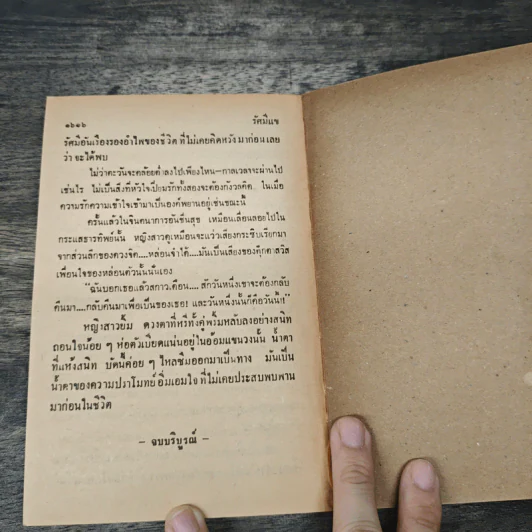 ๑๖๑๖ รัศมีแข
รัศมีอันเรืองรองอำไพของชีวิต ที่ไม่เคยคิดหวังมาก่อนเลย
ว่า จะได้พบ
ไม่ว่าตะวันจะคล้อยต่ำลงไปเพียงไหน—กาลเวลาจะผ่านไป
เช่นไร ไม่เป็นสิ่งที่หัวใจเปี่ยมรักทั้งสองจะต้องกังวลคิด ในเมื่อ
ความรักความเข้าใจเข้ามาเป็นองค์พยานอยู่เช่นขณะนี้
ครั้นแล้วในจินตนาการอันชื่นสุข เหมือนเลื่อนลอยไปใน
กระแสธารทิพย์นั้น หญิงสาวดูเหมือนจะแว่วเสียงกระซิบเรียกมา
จากส่วนลึกของดวงจิต....หล่อนจำได้....มันเป็นเสียงของตุ๊กตาสวิส
เพื่อนใจของหล่อนตัวนั้นนั่นเอง
"ฉันบอกเธอแล้วสกาวเดือน.... สักวันหนึ่งเขาจะต้องกลับ
คืนมา....กลับคืนมาเพื่อเป็นของเธอ! และวันหนึ่งนั้นก็คือวันนี้!"
หญิงสาวยิ้ม ดวงตาที่หรี่ทั้งคู่พริ้มหลับลงอย่างสนิท
ถอนใจน้อย ๆ ห่อตัวเบียดแน่นอยู่ในอ้อมแขนวงนั้น น้ำตา
ที่แห้งสนิท บัดนี้ค่อย ๆ ไหลซึมออกมาเป็นทาง มันเป็น
น้ำตาของความปราโมทย์ อิ่มเอมใจ ที่ไม่เคยประสบพบพาน
มาก่อนในชีวิต
– จบบริบูรณ์ –